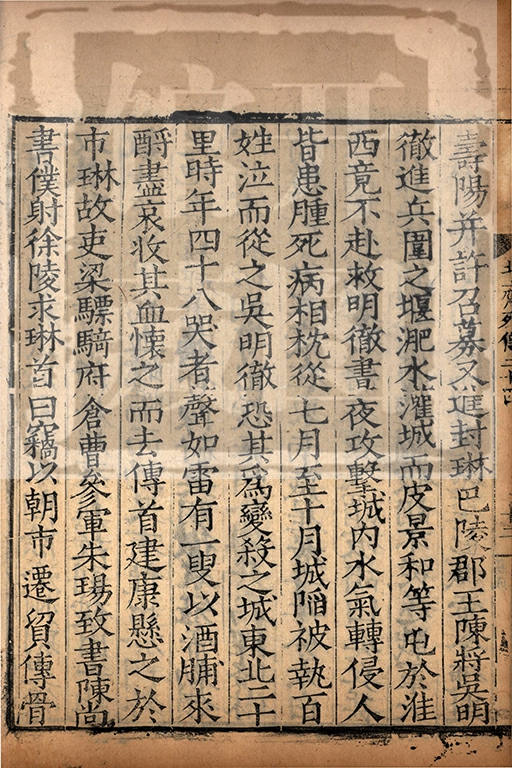 壽陽并許召募又進封琳巴陵郡王陳將吳明
徹進兵圍之堰淝水灌城而皮景和等屯於淮
西竟不赴救明徹晝夜攻擊城内水氣轉侵人
皆患腫死病相枕從七月至十月城陷被執百
姓泣而從之吳明徹恐其爲變殺之城東北二十
里時年四十八哭者聲如雷有一叟以酒脯來
酹盡哀收其血懷之而去傳首建康懸之於
市琳故吏梁驃騎府倉曹參軍朱瑒致書陳尚
書僕射徐陵求琳首曰竊以朝市遷貿傳骨